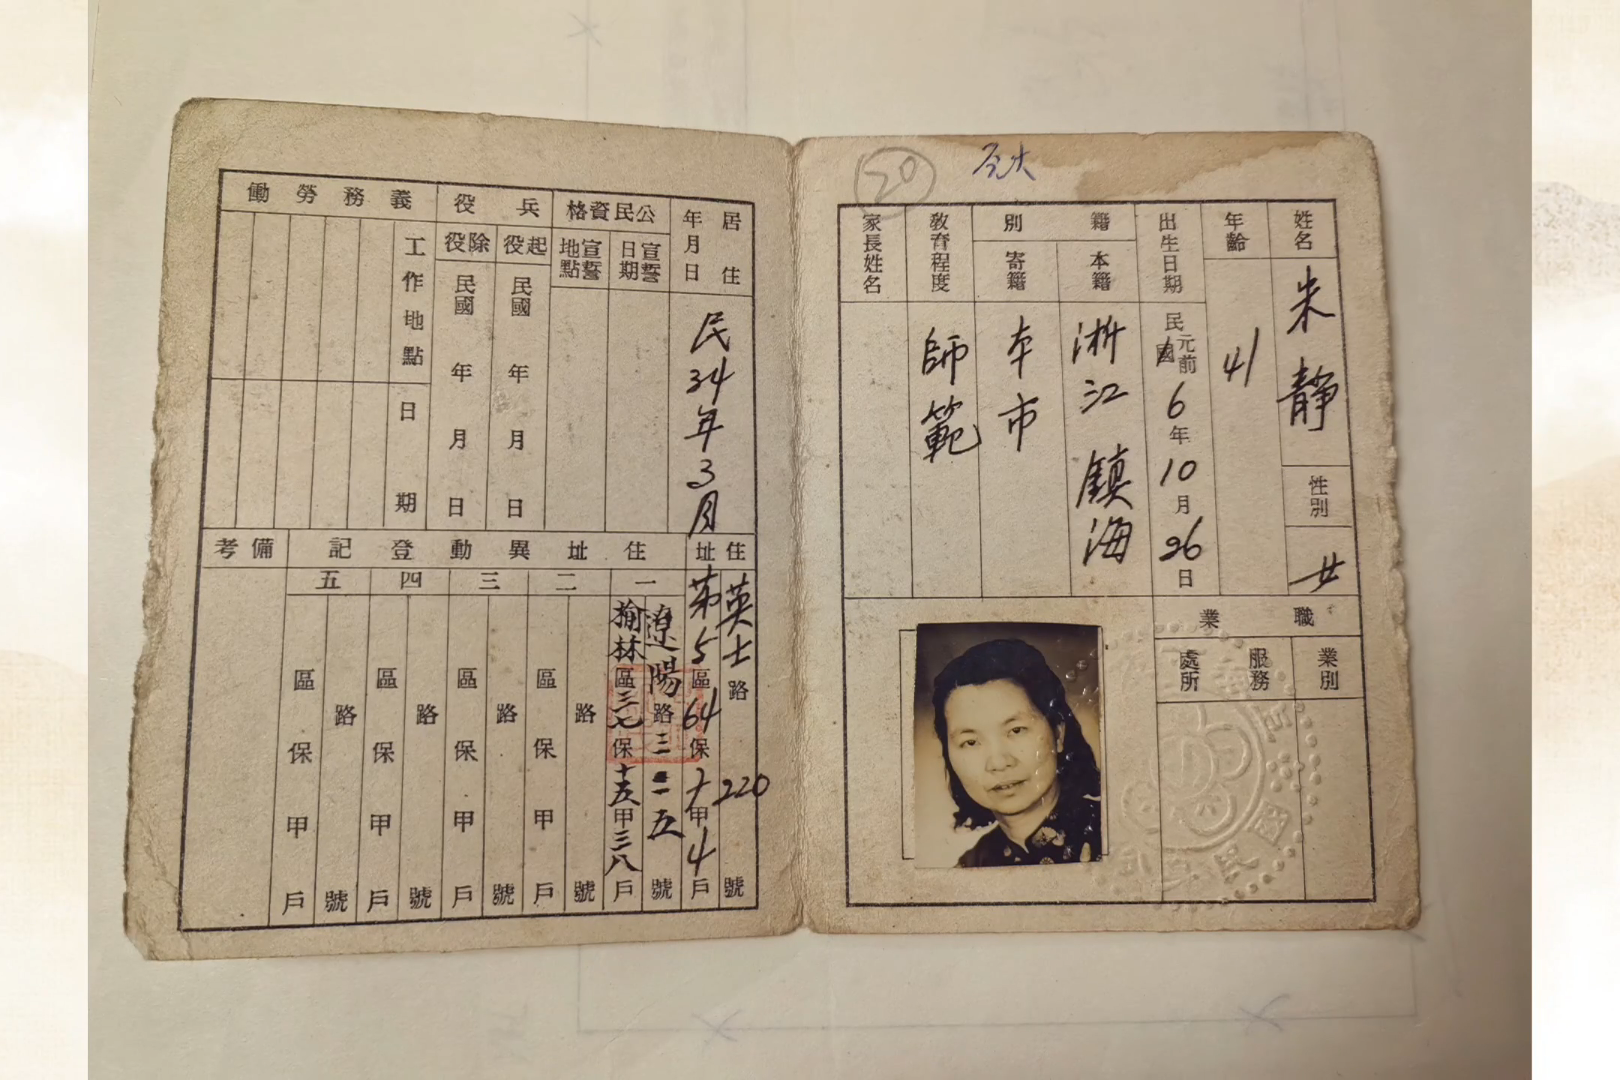 20
姓名
朱靜
性別
女
年齡
41
出生日期
民國元前6年10月26日
籍別
本籍
浙江鎮海
寄籍
本市
教育程度
師範
家長姓名
職業
業別
服務處所
居住年月日
民34年3月
公民資格
宣誓日期
宣誓地點
兵役
起役
民國 年 月 日
除役
民國 年 月 日
義務勞働
工作地點
日期
住址
英士路220號
第5區64保十甲4戶
住址異動登記
一
遼陽路三二五號
榆林區三七保十五甲三八戶
二
路 號
區 保 甲 戶
三
路 號
區 保 甲 戶
四
路 號
區 保 甲 戶
五
路 號
區 保 甲 戶
備考